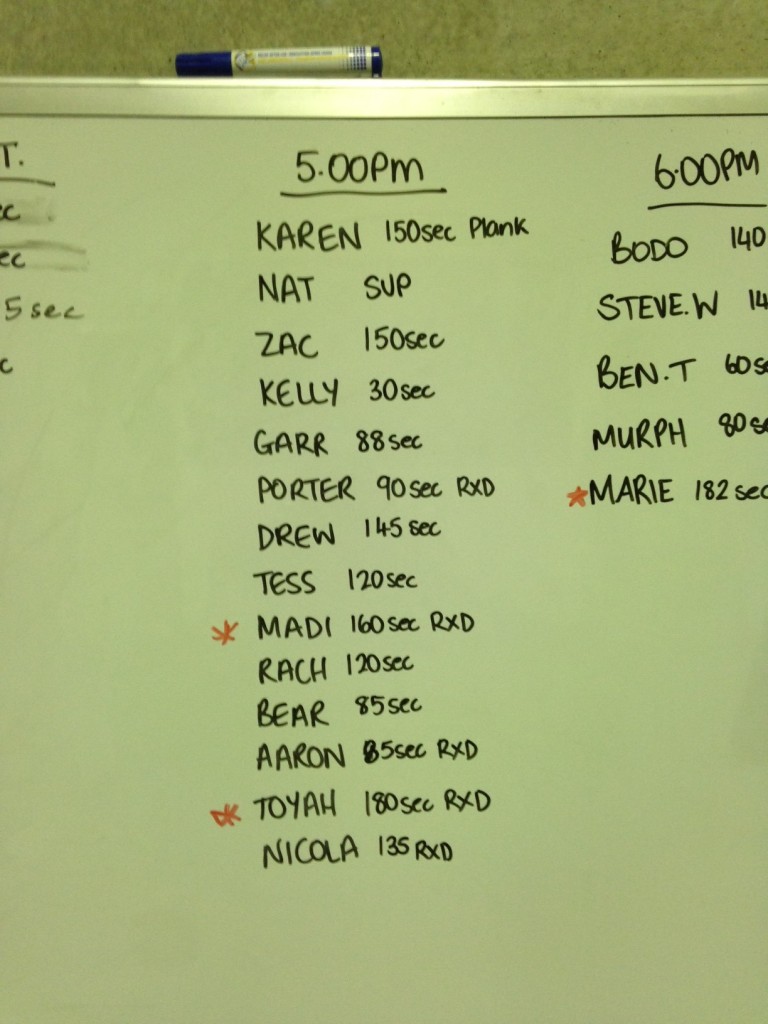 T.
5 sec
5.00PM
KAREN 150sec Plank
NAT SUP
ZAC 150sec
KELLY 30sec
GARR 88sec
PORTER 90sec RXD
DREW 145sec
TESS 120sec
* MADI 160sec RXD
RACH 120sec
BEAR 85sec
AARON 85sec RXD
* TOYAH 180sec RXD
NICOLA 135 RXD
6.00PM
BODO 140
STEVE.W 14
BEN.T 60se
MURPH 80se
* MARIE 182sec